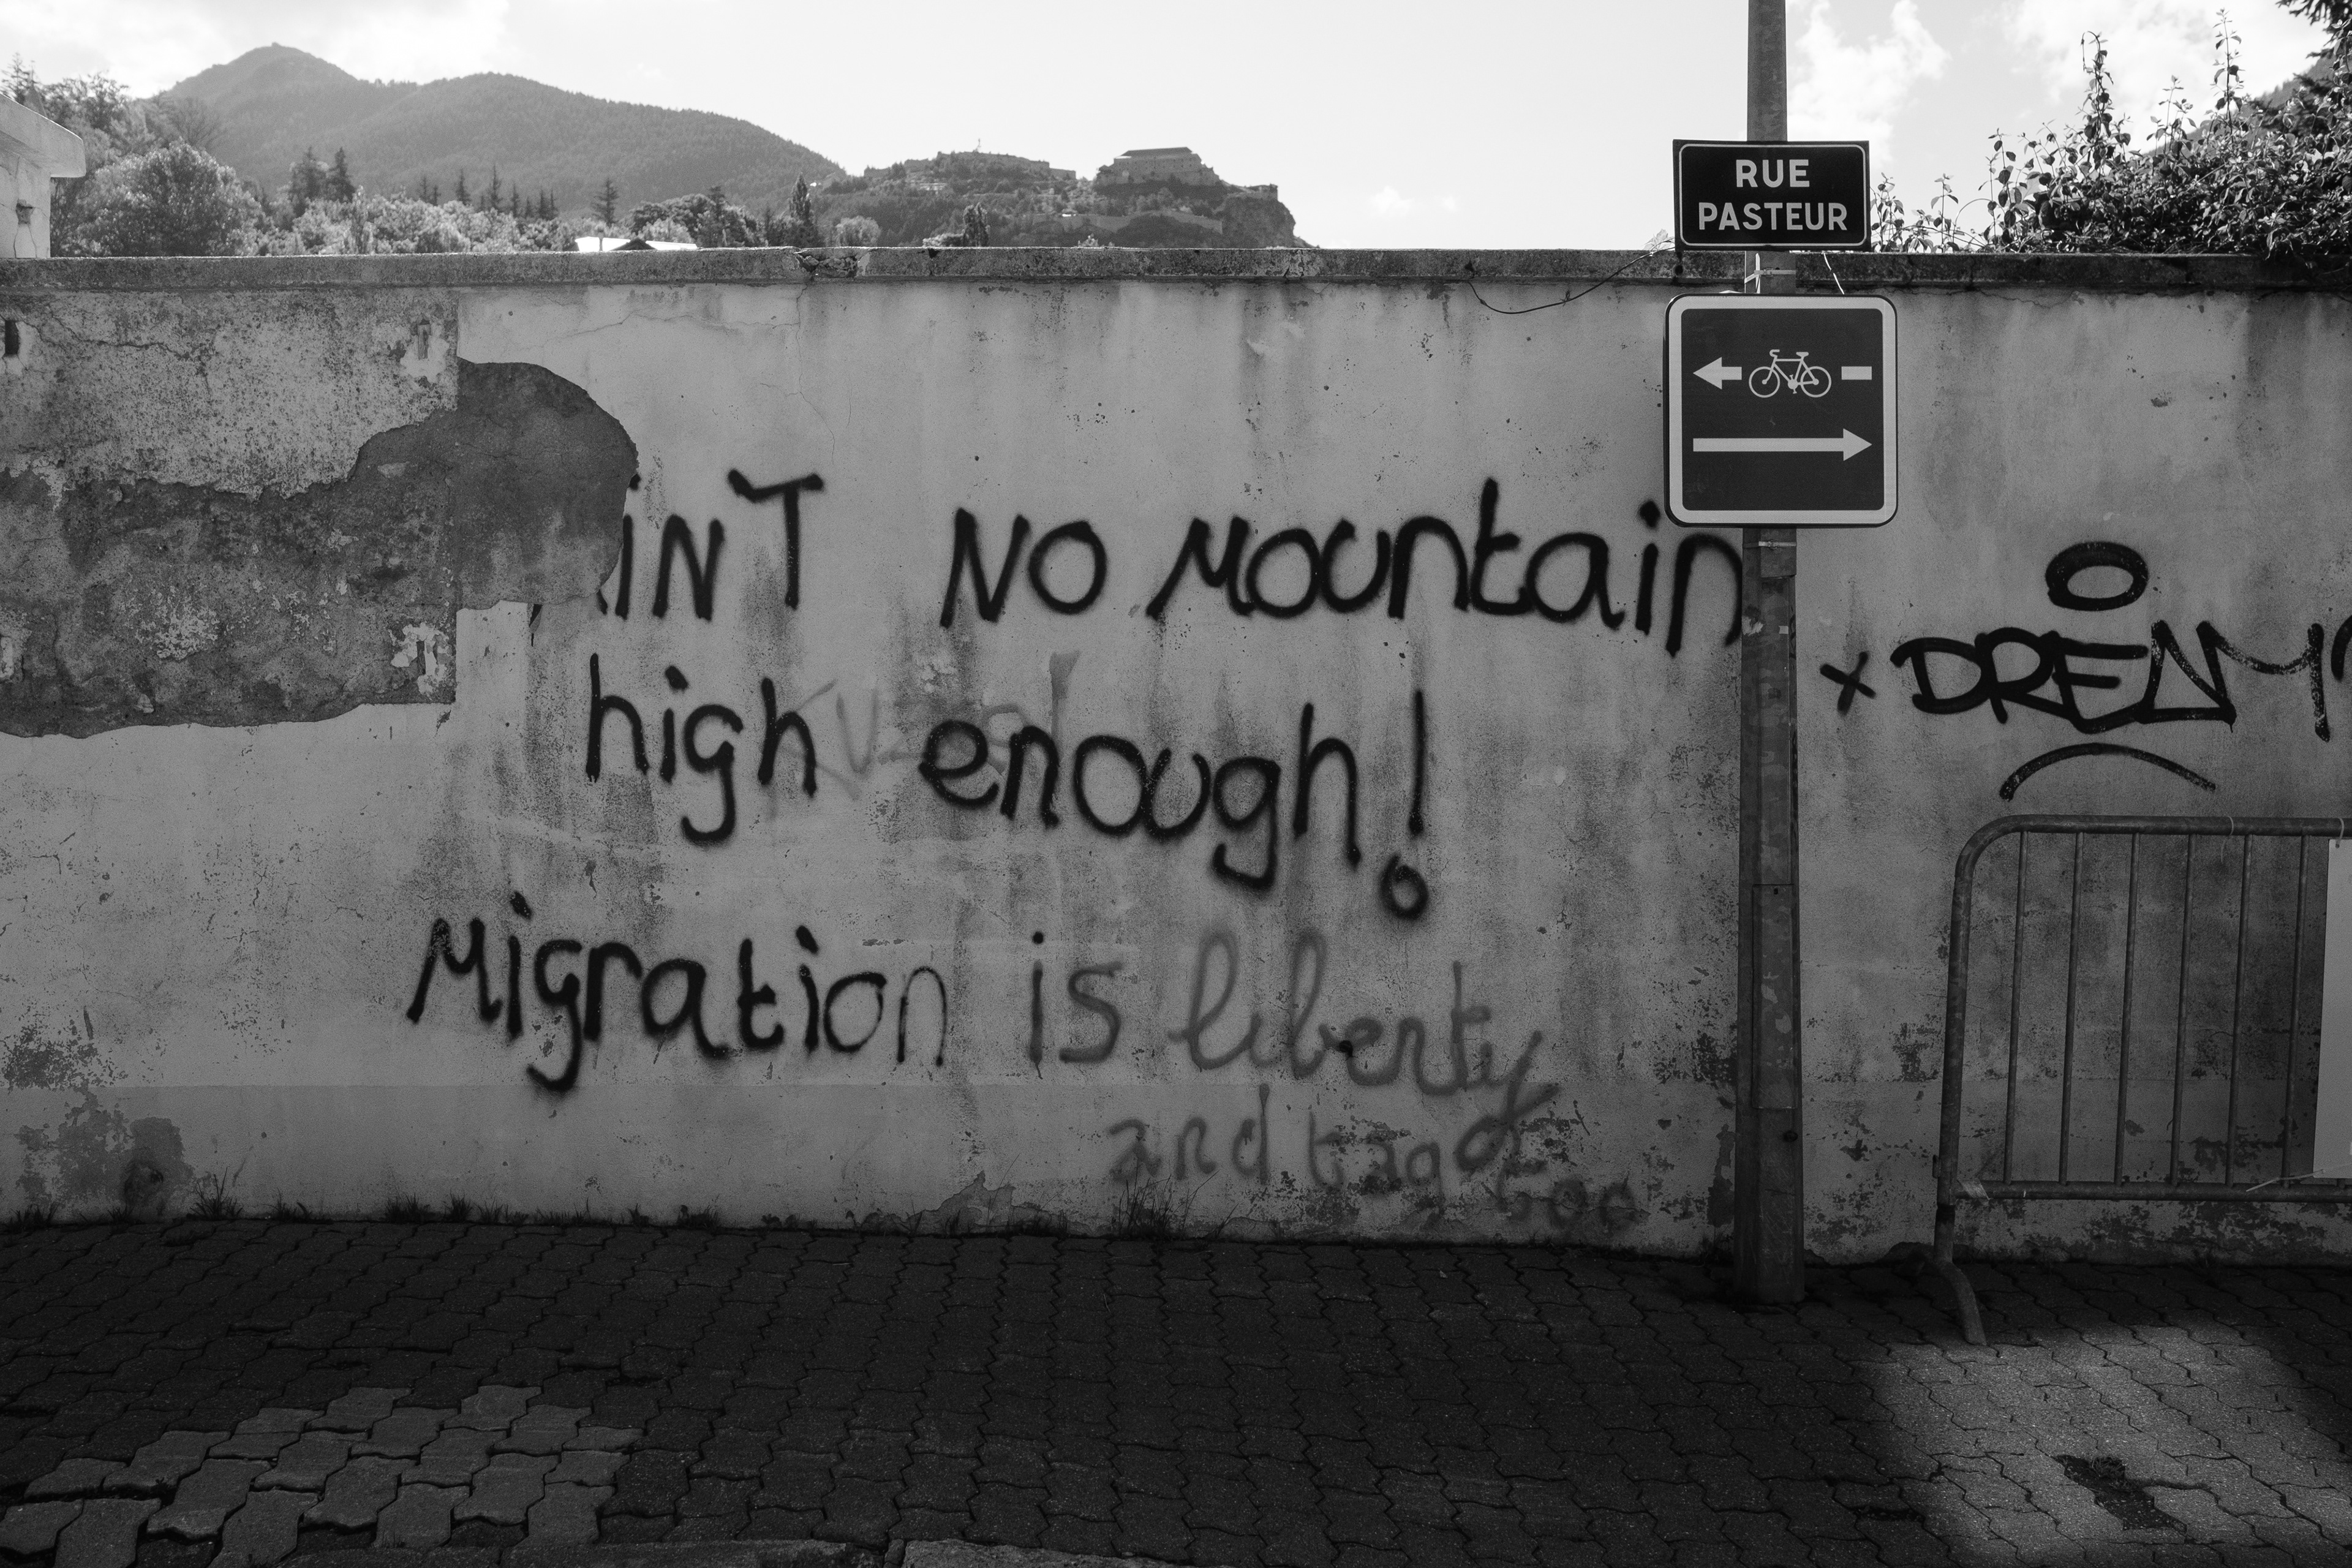 RUE
PASTEUR
INT NO MOUNTAIN
high enough!
Migration is liberty
and tag
too
DREAM